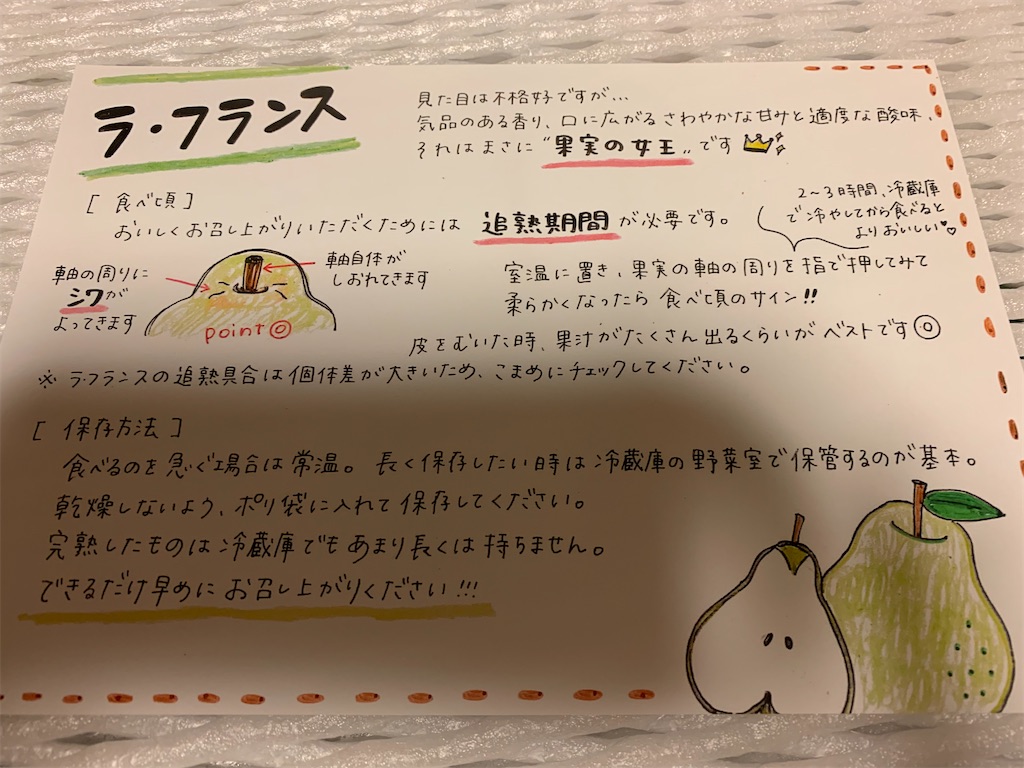 ラ・フランス
見た目は不格好ですが...
気品のある香り、口に広がるさわやかな甘みと適度な酸味、
それはまさに"果実の女王"です
[ 食べ頃 ]
おいしくお召し上がりいただくためには 追熟期間が必要です。
2～3時間、冷蔵庫
で冷やしてから食べると
よりおいしい♡
軸の周りに
シワが
よってきます
軸自体が
しおれてきます
point◎
室温に置き、果実の軸の周りを指で押してみて
柔らかくなったら 食べ頃のサイン!!
皮をむいた時、果汁がたくさん出るくらいが ベストです◎
※ ラ・フランスの追熟具合は個体差が大きいため、こまめにチェックしてください。
[ 保存方法 ]
食べるのを急ぐ場合は常温。長く保存したい時は冷蔵庫の野菜室で保管するのが基本。
乾燥しないよう、ポリ袋に入れて保存してください。
完熟したものは冷蔵庫でもあまり長くは持ちません。
できるだけ早めにお召し上がりください!!!